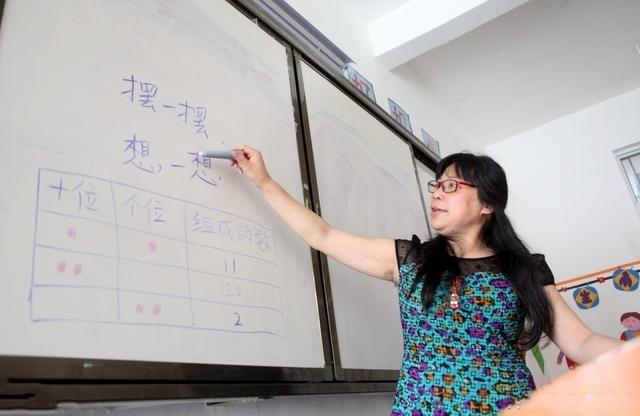 摆一摆
想,一想.
十位 个位 组成的数
11
20
2